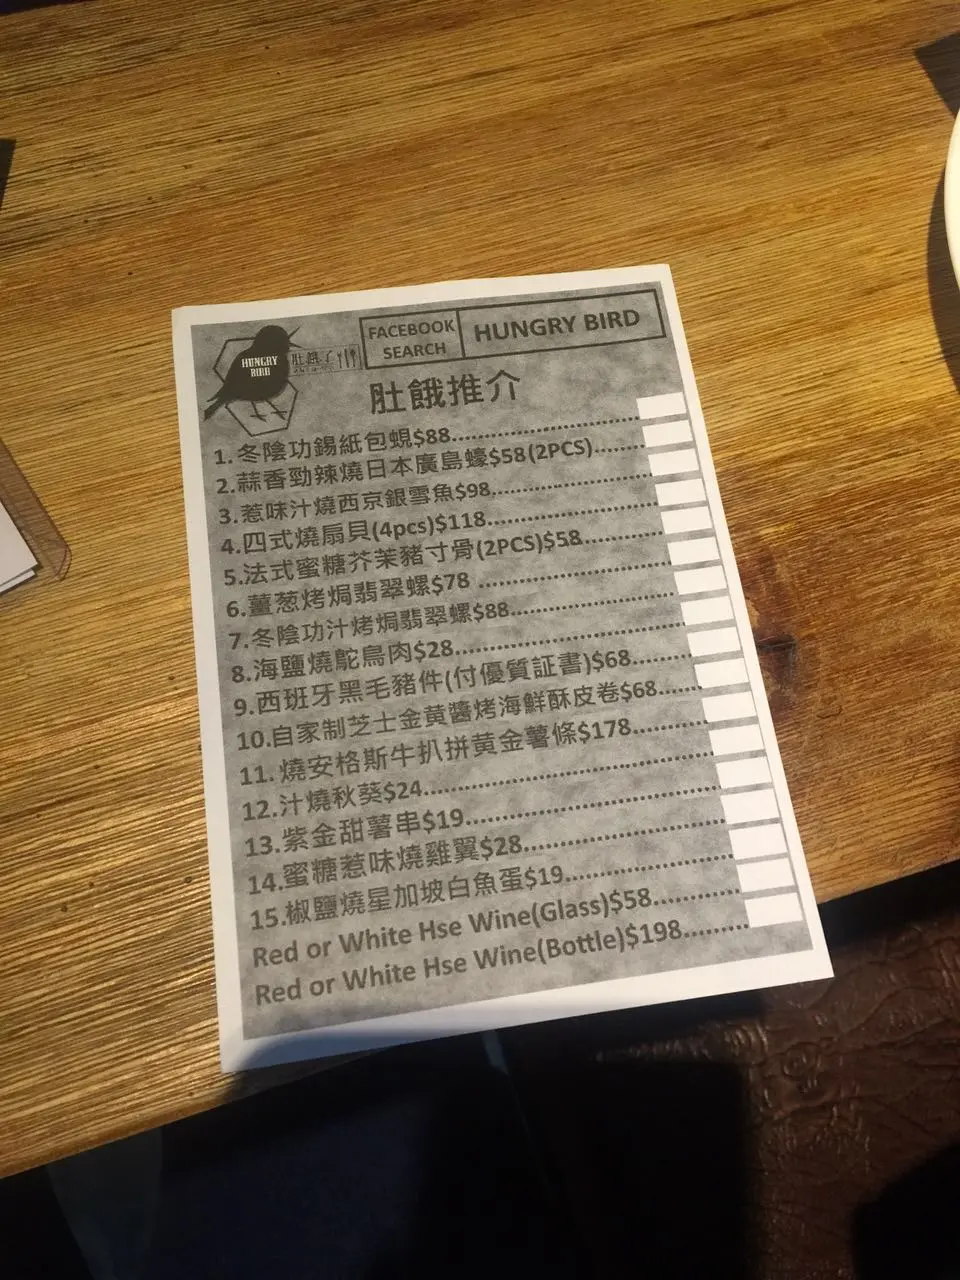 HUNGRY
BIRD
肚餓了
FACEBOOK
SEARCH
HUNGRY BIRD
肚餓推介
1. 冬陰功錫紙包蜆$88
2.蒜香勁辣燒日本廣島蠔$58(2PCS)
3.惹味汁燒西京銀雪魚$98
4.四式燒扇貝(4pcs)$118
5.法式蜜糖芥茉豬寸骨(2PCS)$58
6.薑葱烤焗翡翠螺$78
7.冬陰功汁烤焗翡翠螺$88
8.海鹽燒鴕鳥肉$28
9.西班牙黑毛豬件(付優質証書)$68
10.自家制芝士金黄醬烤海鮮酥皮卷$68
11. 燒安格斯牛扒拼黄金薯條$178
12.汁燒秋葵$24
13.紫金甜薯串$19
14.蜜糖惹味燒雞翼$28
15.椒鹽燒星加坡白魚蛋$19
Red or White Hse Wine(Glass)$58
Red or White Hse Wine(Bottle)$198